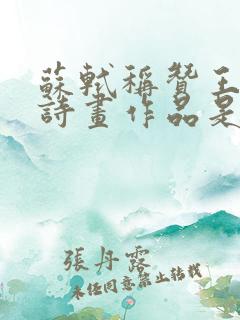 蘇軾稱贊王
詩畫作品是
張丹露
未經同意禁止轉載